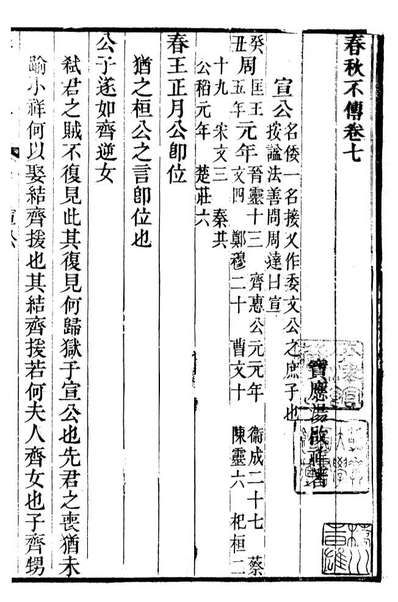 春秋不傳卷七
寶應湯啟祚著
宣公 名倭一名接又作委文公之庶子也
按謚法善問周達曰宣
癸周匡王元年晉靈十三 齊惠公元元年 衞成二十七 蔡
丑 五年 文四 鄭穆二十 曹文十 陳靈六 杞桓二
十九 宋文三 秦共
公稻元年 楚莊六
春王正月公卽位
猶之桓公之言卽位也
公子遂如齊逆女
弒君之賊不復見此其復見何歸獄于宣公也先君之喪猶未
踰小祥何以娶結齊援也其結齊援若何夫人齊女也子齊甥